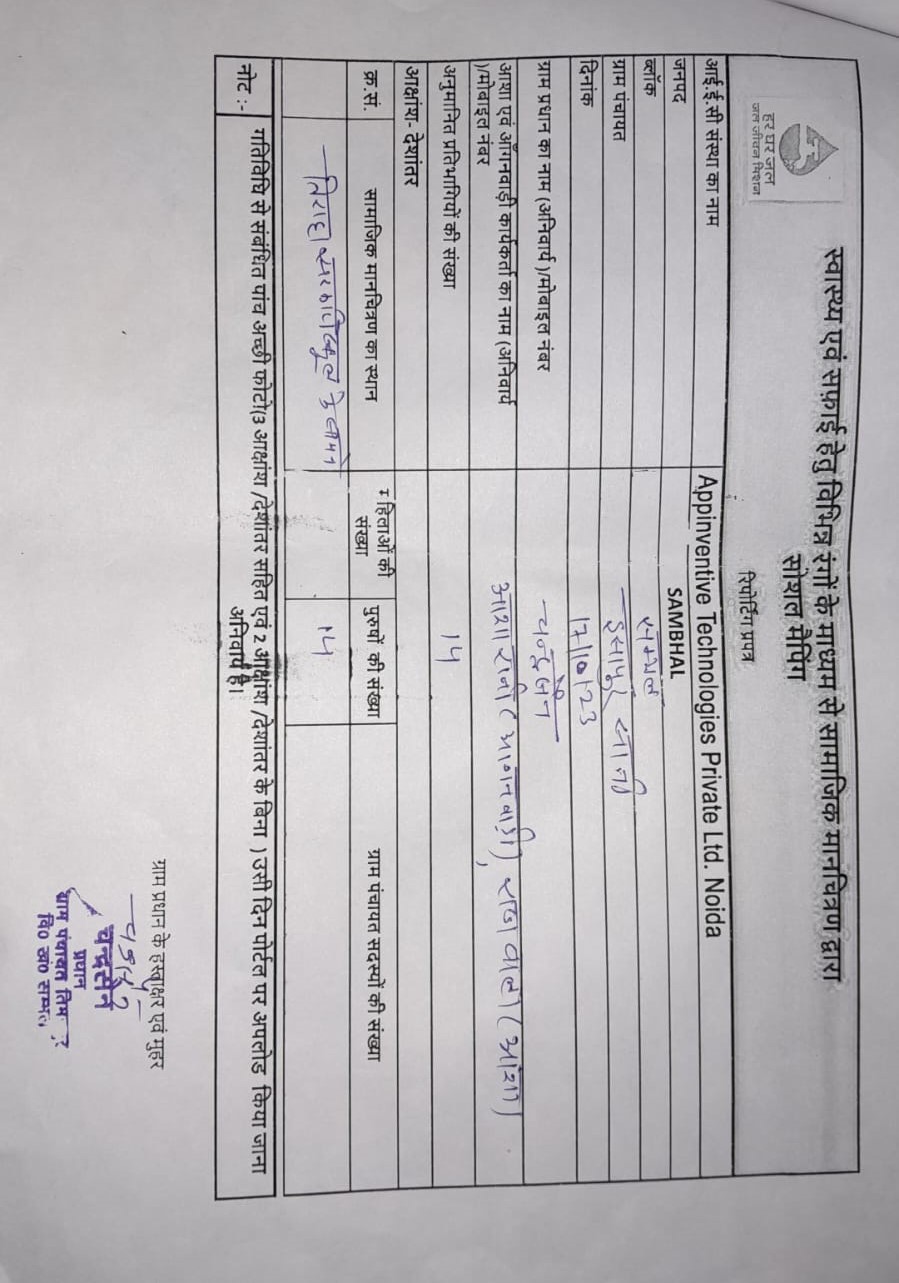 हर घर जल
जल जीवन मिशन
स्वास्थ्य एवं सफ़ाई हेतु विभिन्न रंगों के माध्यम से सामाजिक मानचित्रण द्वारा
सोशल मैपिंग
रिपोर्टिंग प्रपत्र
आई.ई.सी संस्था का नाम Appinventive Technologies Private Ltd. Noida
जनपद SAMBHAL
ब्लॉक सम्भल
ग्राम पंचायत
दिनांक 17/10/23
ग्राम प्रधान का नाम (अनिवार्य )/मोबाइल नंबर चन्द्रसैन
आशा एवं आँगनवाड़ी कार्यकर्ता का नाम (अनिवार्य
)/मोबाइल नंबर
अनुमानित प्रतिभागियों की संख्या 14
आक्षांश- देशांतर
क्र.सं. सामाजिक मानचित्रण का स्थान महिलाओं की संख्या पुरुषों की संख्या ग्राम पंचायत सदस्यों की संख्या
14
नोट :- गतिविधि से संबंधित पांच अच्छी फोटो(3 आक्षांश /देशांतर सहित एवं 2 आक्षांश /देशांतर के बिना ) उसी दिन पोर्टल पर अपलोड किया जाना
अनिवार्य है।
ग्राम प्रधान के हस्ताक्षर एवं मुहर
चन्द्रसैन
प्रधान
ग्राम पंचायत
वि0 ख0